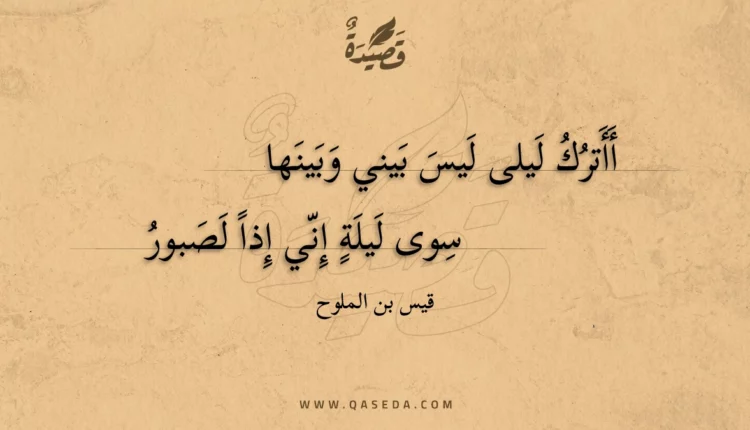 قَصِيدَةٌ
أَأَترُكُ لَيلى لَيسَ بَيني وَبَينَها
سِوى لَيلَةٍ إِنّي إِذاً لَصَبورُ
قيس بن الملوح
WWW.QASEDA.COM